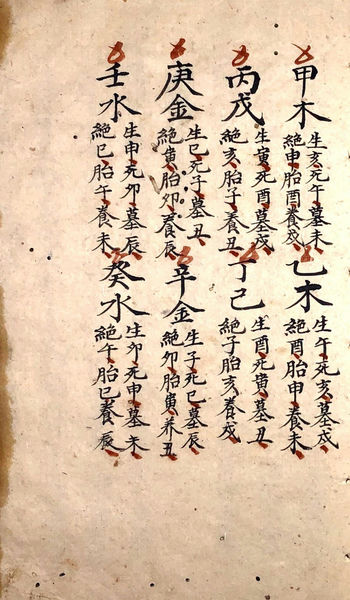 甲木
生亥死午墓未
絕申胎酉養戌
乙木
生午死亥墓戌
絕酉胎申養未
丙戊
生寅死酉墓戌
絕亥胎子養丑
丁己
生酉死寅墓丑
絕子胎亥養戌
庚金
生巳死子墓丑
絕寅胎卯養辰
辛金
生子死巳墓辰
絕卯胎寅养丑
壬水
生申死卯墓辰
絕巳胎午養未
癸水
生卯死申墓未
絕午胎巳養辰